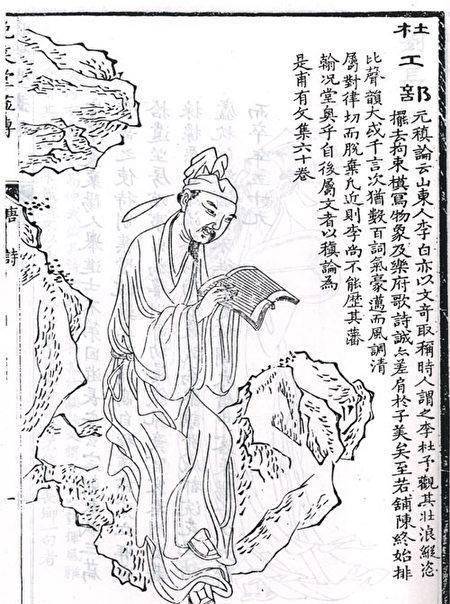 杜工部
元稹論云山東人李白亦以文奇取稱時人謂之李杜予觀其壯浪縱恣
擺去拘束模寫物象及樂府歌詩誠亦差肩於子美矣至若鋪陳終始排
比聲韻大或千言次猶數百詞氣豪邁而風調清
屬對律切而脫棄凡近則李尚不能歷其藩
翰况堂奧乎自後屬文者以稹論為
是甫有文集六十卷
笑堂畫傳
唐